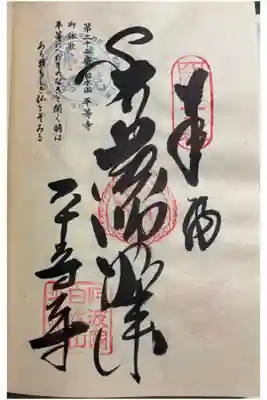 奉
薬師如来
平等寺
第二十二番白水山平等寺
御詠歌
平等にへだてのなきと聞く時は
あら頼もしき仏とぞみる
阿波国
白水山